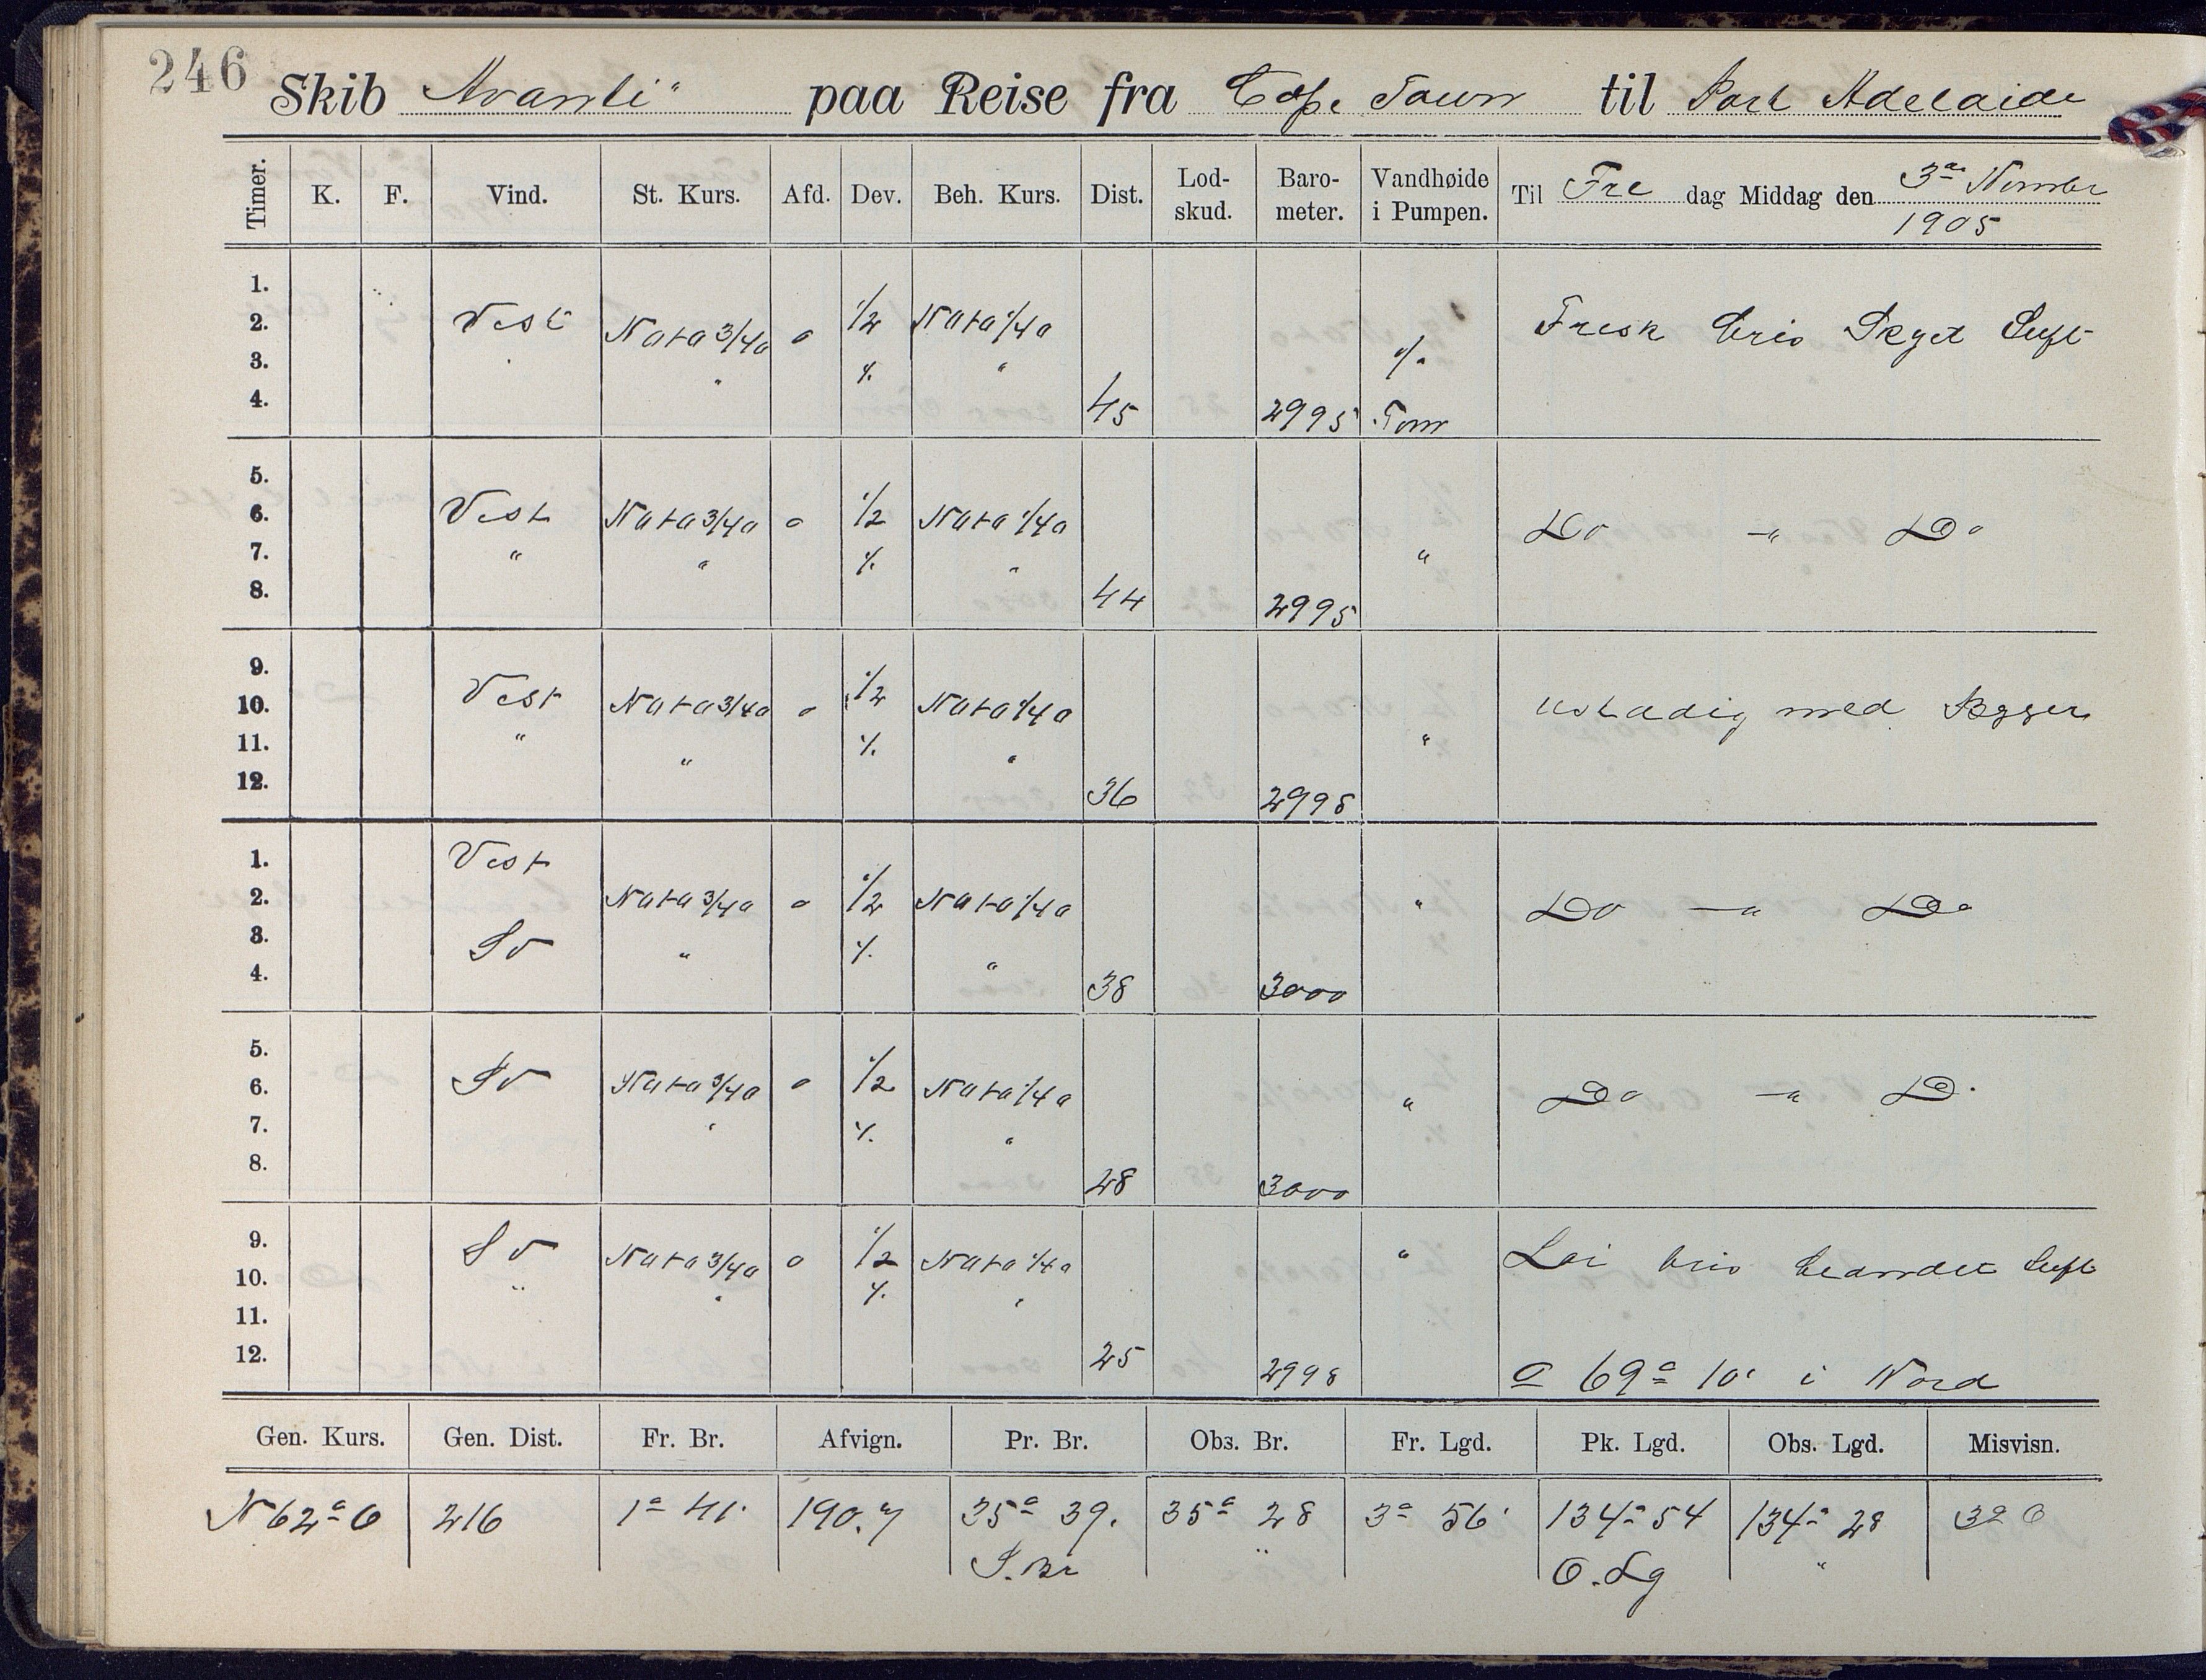 246
Skib "Avanti" paa Reise fra Cape Town til Port Adelaide
Timer. K. F. Vind. St. Kurs. Afd. Dev. Beh. Kurs. Dist. Lod-skud. Baro-meter. Vandhøide i Pumpen. Til Fre dag Middag den 3die Novmbr 1905
1.
2. Vest NOtO 3/4 O 0 1/2 NOtO 1/4 O Frisk bris Skyet Luft
3. " " V. " %
4. 45 2995 Tom
5.
6. Vest NOtO 3/4 O 0 1/2 NOtO 1/4 O Do —"— Do
7. " " V. " "
8. 44 2995
9.
10. Vest NOtO 3/4 O 0 1/2 NOtO 1/4 O ustadig med Byger
11. " " V. " "
12. 36 2998
1. Vest
2. NOtO 3/4 O 0 1/2 NOtO 1/4 O " Do —"— Do
3. SV " V. "
4. 38 3000
5.
6. SV NOtO 3/4 O 0 1/2 NOtO 1/4 O " Do —"— Do
7. " V. "
8. 28 3000
9. SV NOtO 3/4 O 0 1/2 NOtO 1/4 O " Løi bris blandet Luft
10. " " V. "
11.
12. 25 2998 O 69° 10' i Nord
Gen. Kurs. Gen. Dist. Fr. Br. Afvign. Pr. Br. Obs. Br. Fr. Lgd. Pk. Lgd. Obs. Lgd. Misvisn.
N 62° O 216 1° 41' 190.7 35° 39. 35° 28 3° 56' 134° 54 134° 28
S. Br " O. Lg "